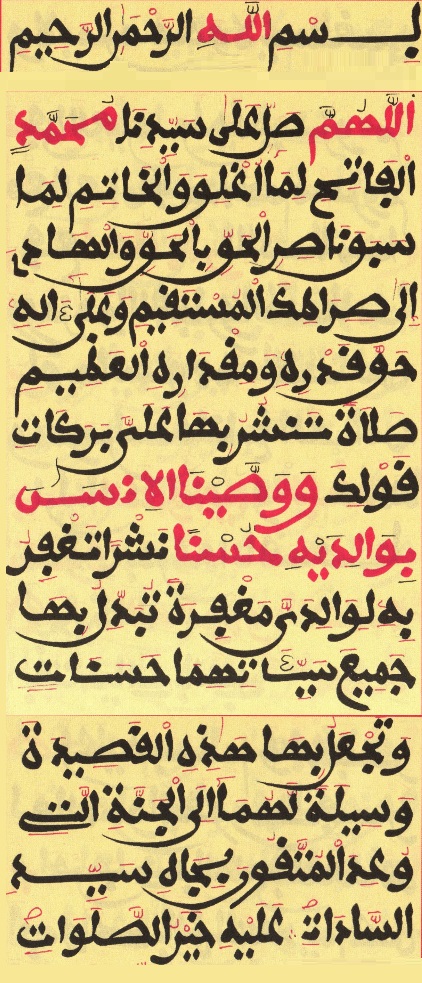 بِسْمِ اللَّهِ الرَّحْمَنِ الرَّحِيمِ
اللَّهُمَّ صَلِّ عَلَى سَيِّدِنَا مُحَمَّدٍ
الْفَاتِحِ لِمَا أُغْلِقَ وَالْخَاتِمِ لِمَا
سَبَقَ نَاصِرِ الْحَقِّ بِالْحَقِّ وَالْهَادِي
إِلَى صِرَاطِكَ الْمُسْتَقِيمِ وَعَلَى آلِهِ
حَقَّ قَدْرِهِ وَمِقْدَارِهِ الْعَظِيمِ
صَلَاةً تَنْشُرُ بِهَا عَلَيَّ بَرَكَاتِ
قَوْلِكَ وَوَصَّيْنَا الْإِنْسَنَ
بِوَالِدَيْهِ حُسْنًا نَشْرًا تَغْفِرُ
بِهِ لِوَالِدَيَّ مَغْفِرَةً تُبَدِّلُ بِهَا
جَمِيعَ سَيِّئَاتِهِمَا حَسَنَاتٍ
وَتَجْعَلُ بِهَا هَذِهِ الْقَصِيدَةَ
وَسِيلَةً لَهُمَا إِلَى الْجَنَّةِ الَّتِي
وُعِدَ الْمُتَّقُونَ بِجَاهِ سَيِّدِ
السَّادَاتِ عَلَيْهِ خَيْرُ الصَّلَوَاتِ